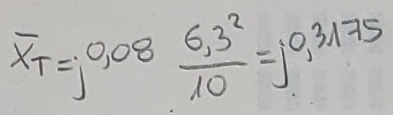 X̅_T = j0,08 6,3²/10 = j0,3175